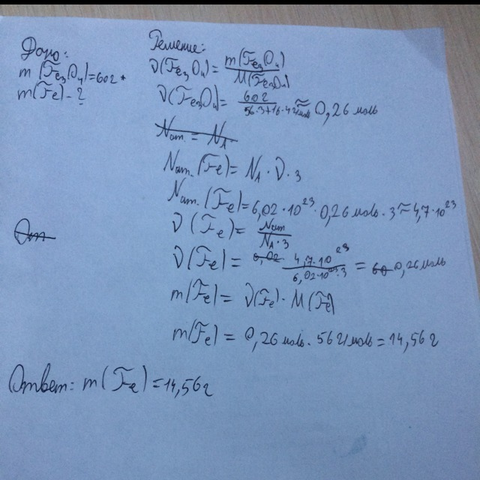 Дано:
m(Fe3O4)=60г.
m(Fe)-?
Решение:
ν(Fe3O4)=m(Fe3O4)/M(Fe3O4)
ν(Fe3O4)=60г/56·3+16·4г/моль≈0,26 моль
Nат. = NA·
Nат.(Fe)=NA·ν·3
Nат.(Fe)=6,02·10^23·0,26 моль·3≈4,7·10^23
ν(Fe)=Nат/NA·3
ν(Fe)=6,02 4,7·10^23/6,02·10^23·3=0,26 моль
m(Fe)=ν(Fe)·M(Fe)
m(Fe)=0,26 моль·56г/моль=14,56г
От
Ответ: m(Fe)=14,56г